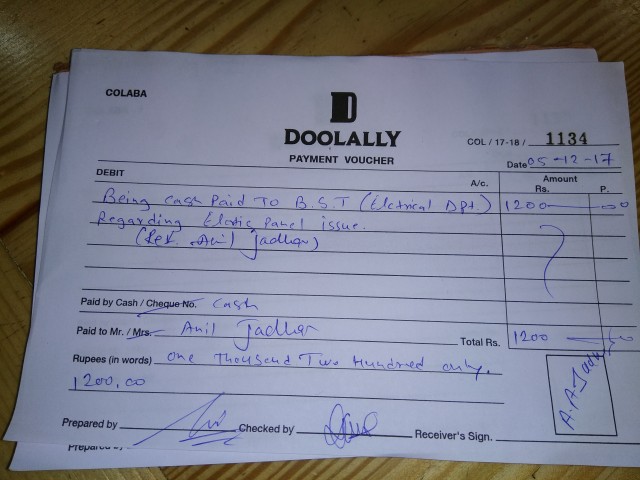 COLABA
DOOLALLY
PAYMENT VOUCHER
COL / 17-18 / 1134
Date 05-12-17
DEBIT A/c. Amount
Rs. P.
Being cash Paid To B.S.T (Elctrical Dpt.) 1200 00
Regarding Elctric Panel issue.
(Ref. Anil Jadhav)
Paid by Cash / Cheque No. Cash
Paid to Mr. / Mrs. Anil Jadhav Total Rs. 1200
Rupees (in words) One Thousand Two Hundred only.
1200.00
A.A.Jadhav
Prepared by Checked by Receiver's Sign.
Prepared by